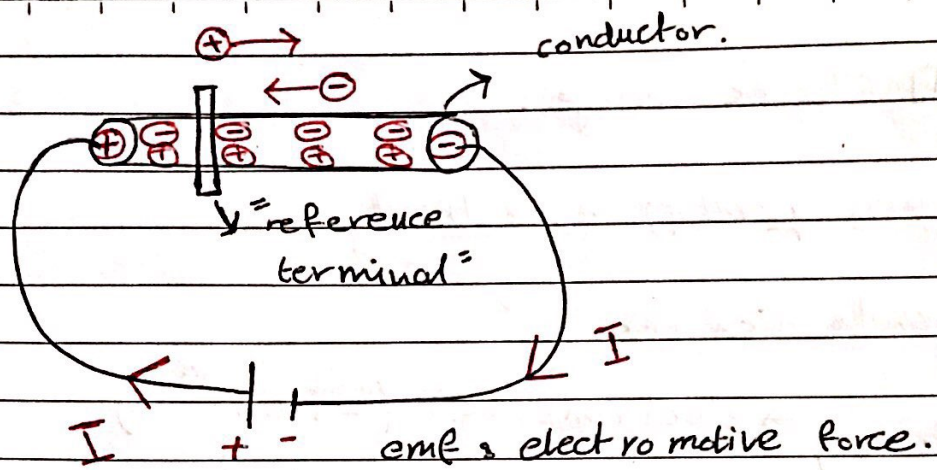 ⊕→
conductor.
←⊖
⊕ ⊖ ⊖ ⊖ ⊖ ⊖
⊕ ⊕ ⊕ ⊕
"reference
terminal"
I
I
+ -
emf : electro motive force.